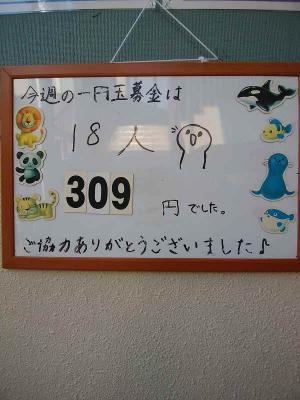 今週の一円玉募金は
18人
309円でした。
ご協力ありがとうございました♪